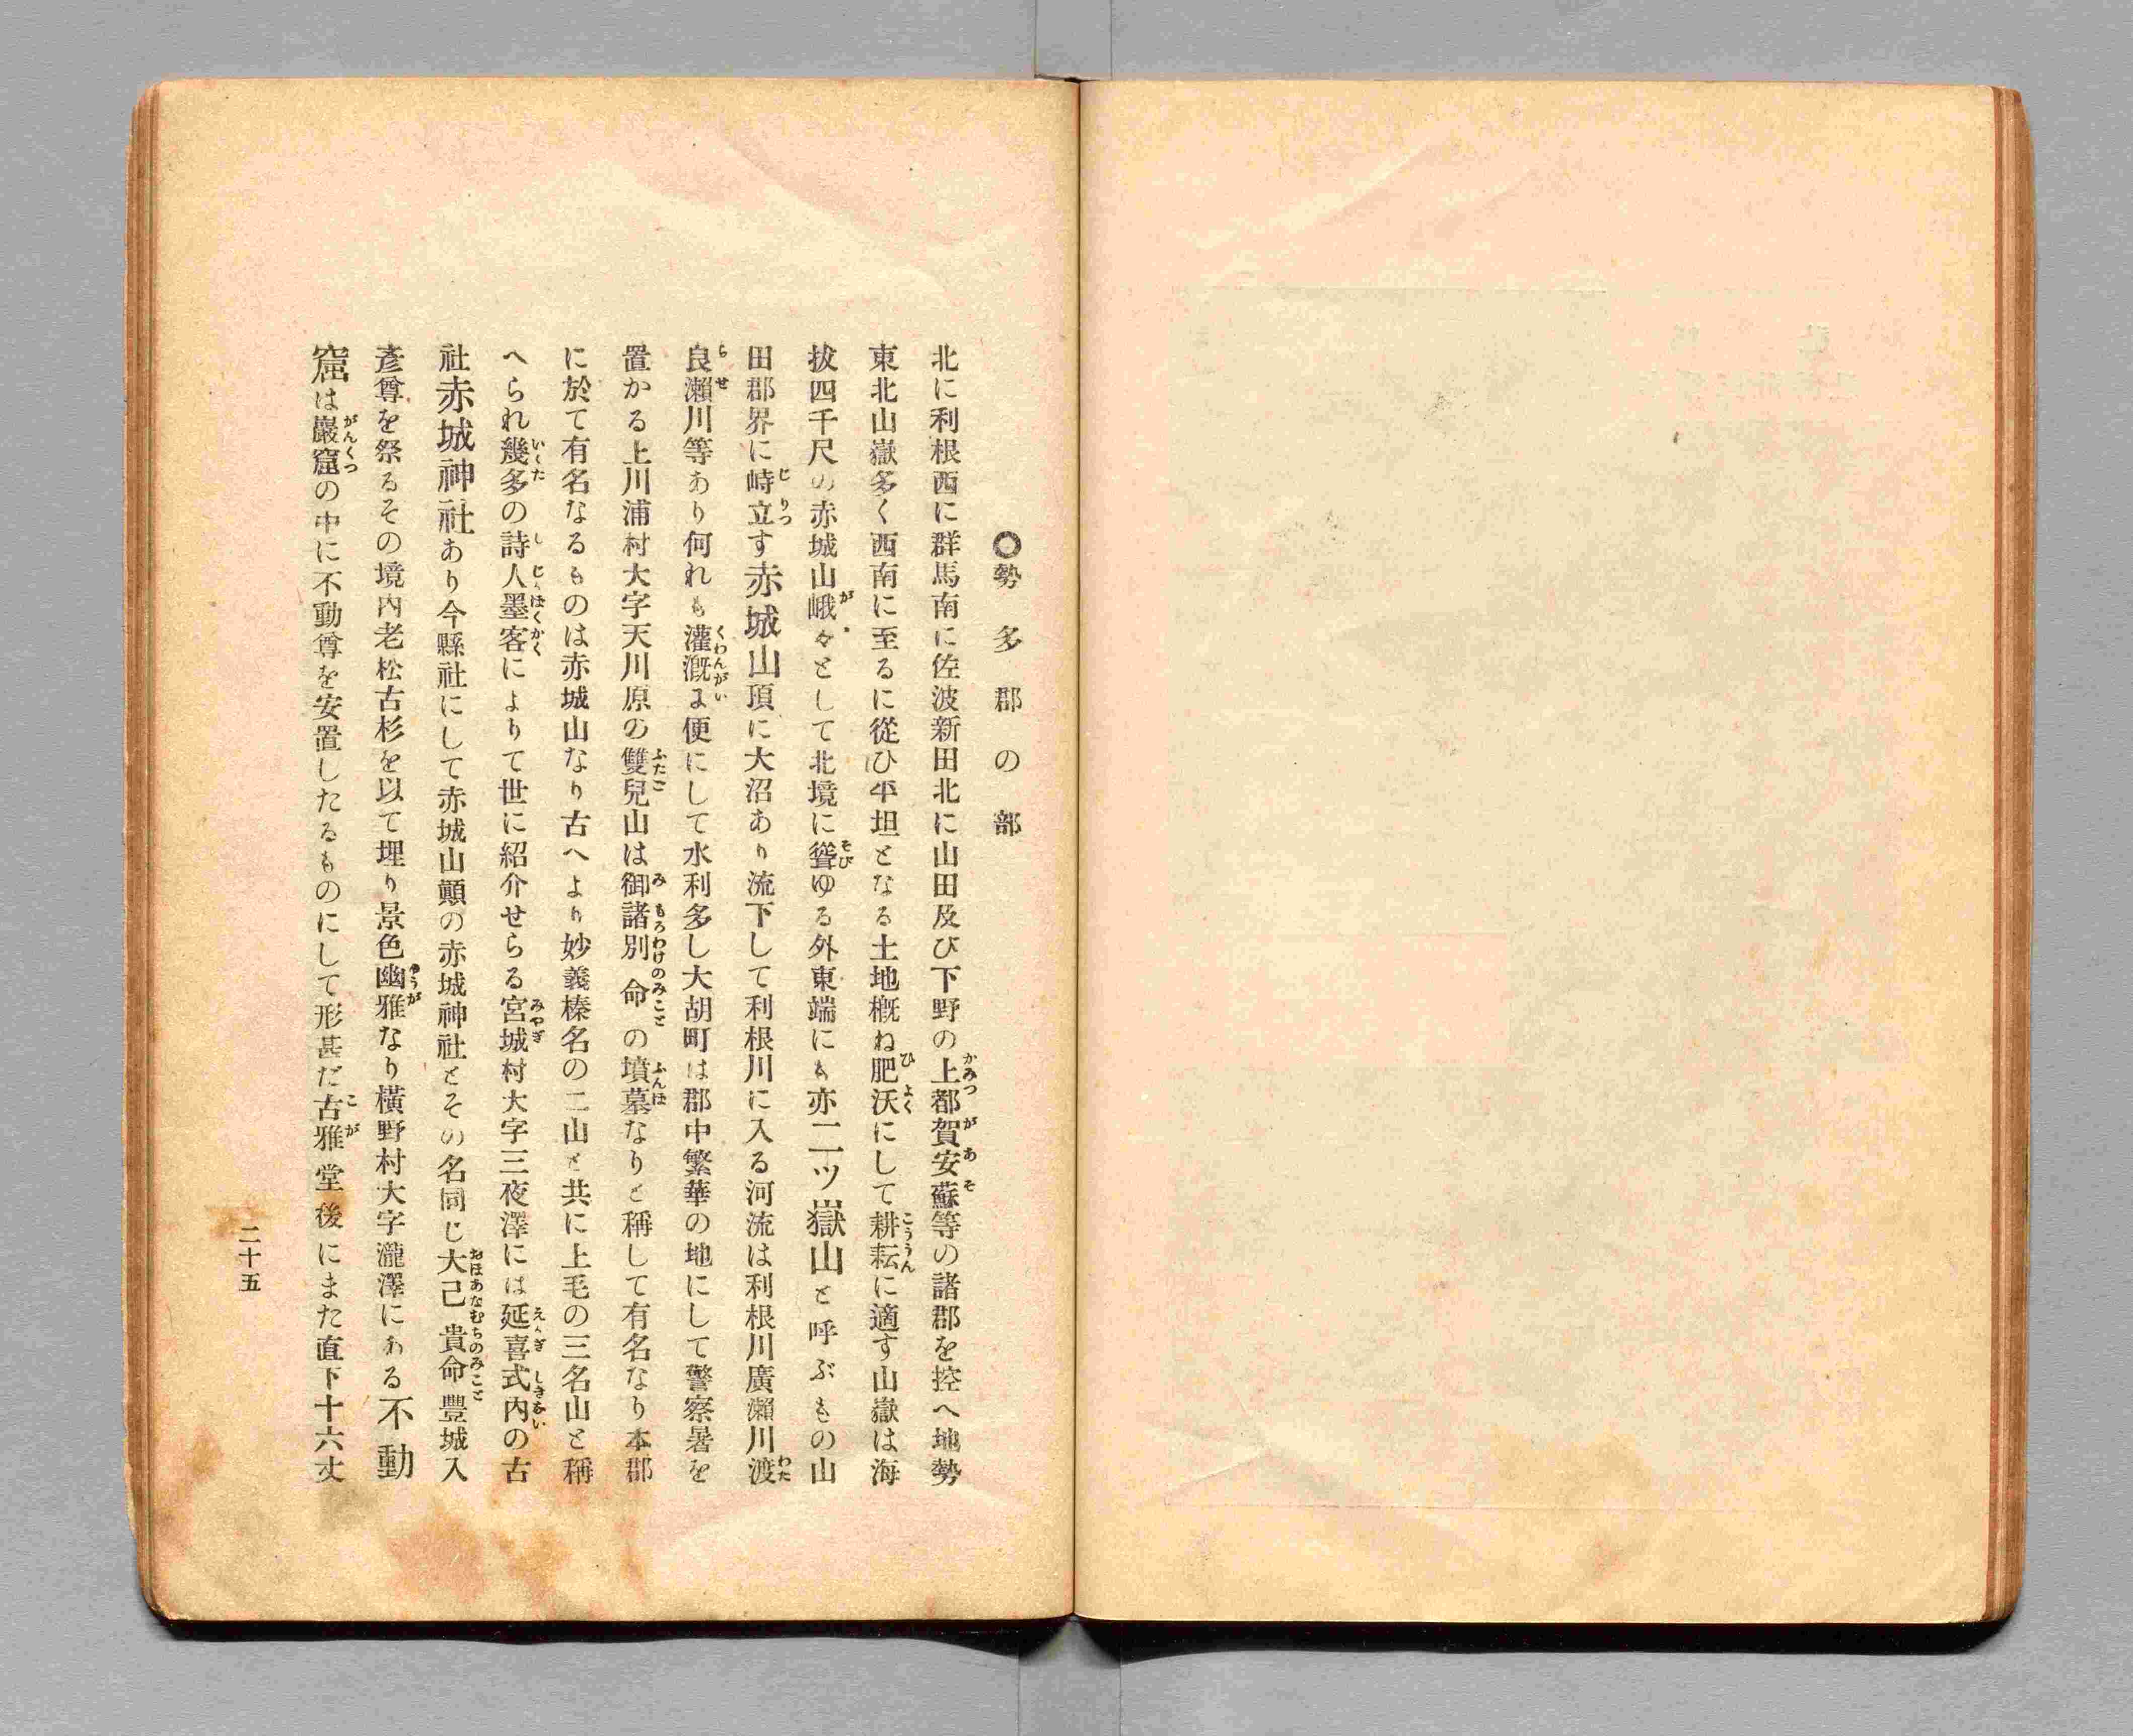 ◯勢多郡の部
北に利根西に群馬南に佐波新田北に山田及び下野の上都賀安蘇等の諸郡を控へ地勢
東北山嶽多く西南に至るに從ひ平坦となる土地槪ね肥沃にして耕耘に適す山嶽は海
拔四千尺の赤城山峨々として北境に聳ゆる外東端にも亦二ツ嶽山と呼ぶもの山
田郡界に峙立す赤城山頂に大沼あり流下して利根川に入る河流は利根川廣瀨川渡
良瀨川等あり何れも灌漑ま便にして水利多し大胡町は郡中繁華の地にして警察署を
置かる上川浦村大字天川原の雙兒山は御諸別命の墳墓なりと稱して有名なり本郡
に於て有名なるものは赤城山なり古へより妙義榛名の二山と共に上毛の三名山と稱
へられ幾多の詩人墨客によりて世に紹介せらる宮城村大字三夜澤には延喜式內の古
社赤城神社あり今縣社にして赤城山顚の赤城神社とその名同じ大己貴命豐城入
彥尊を祭るその境內老松古杉を以て埋り景色幽雅なり橫野村大字瀧澤にある不動
窟は巖窟の中に不動尊を安置したるものにして形甚だ古雅堂後にまた直下十六丈
二十五